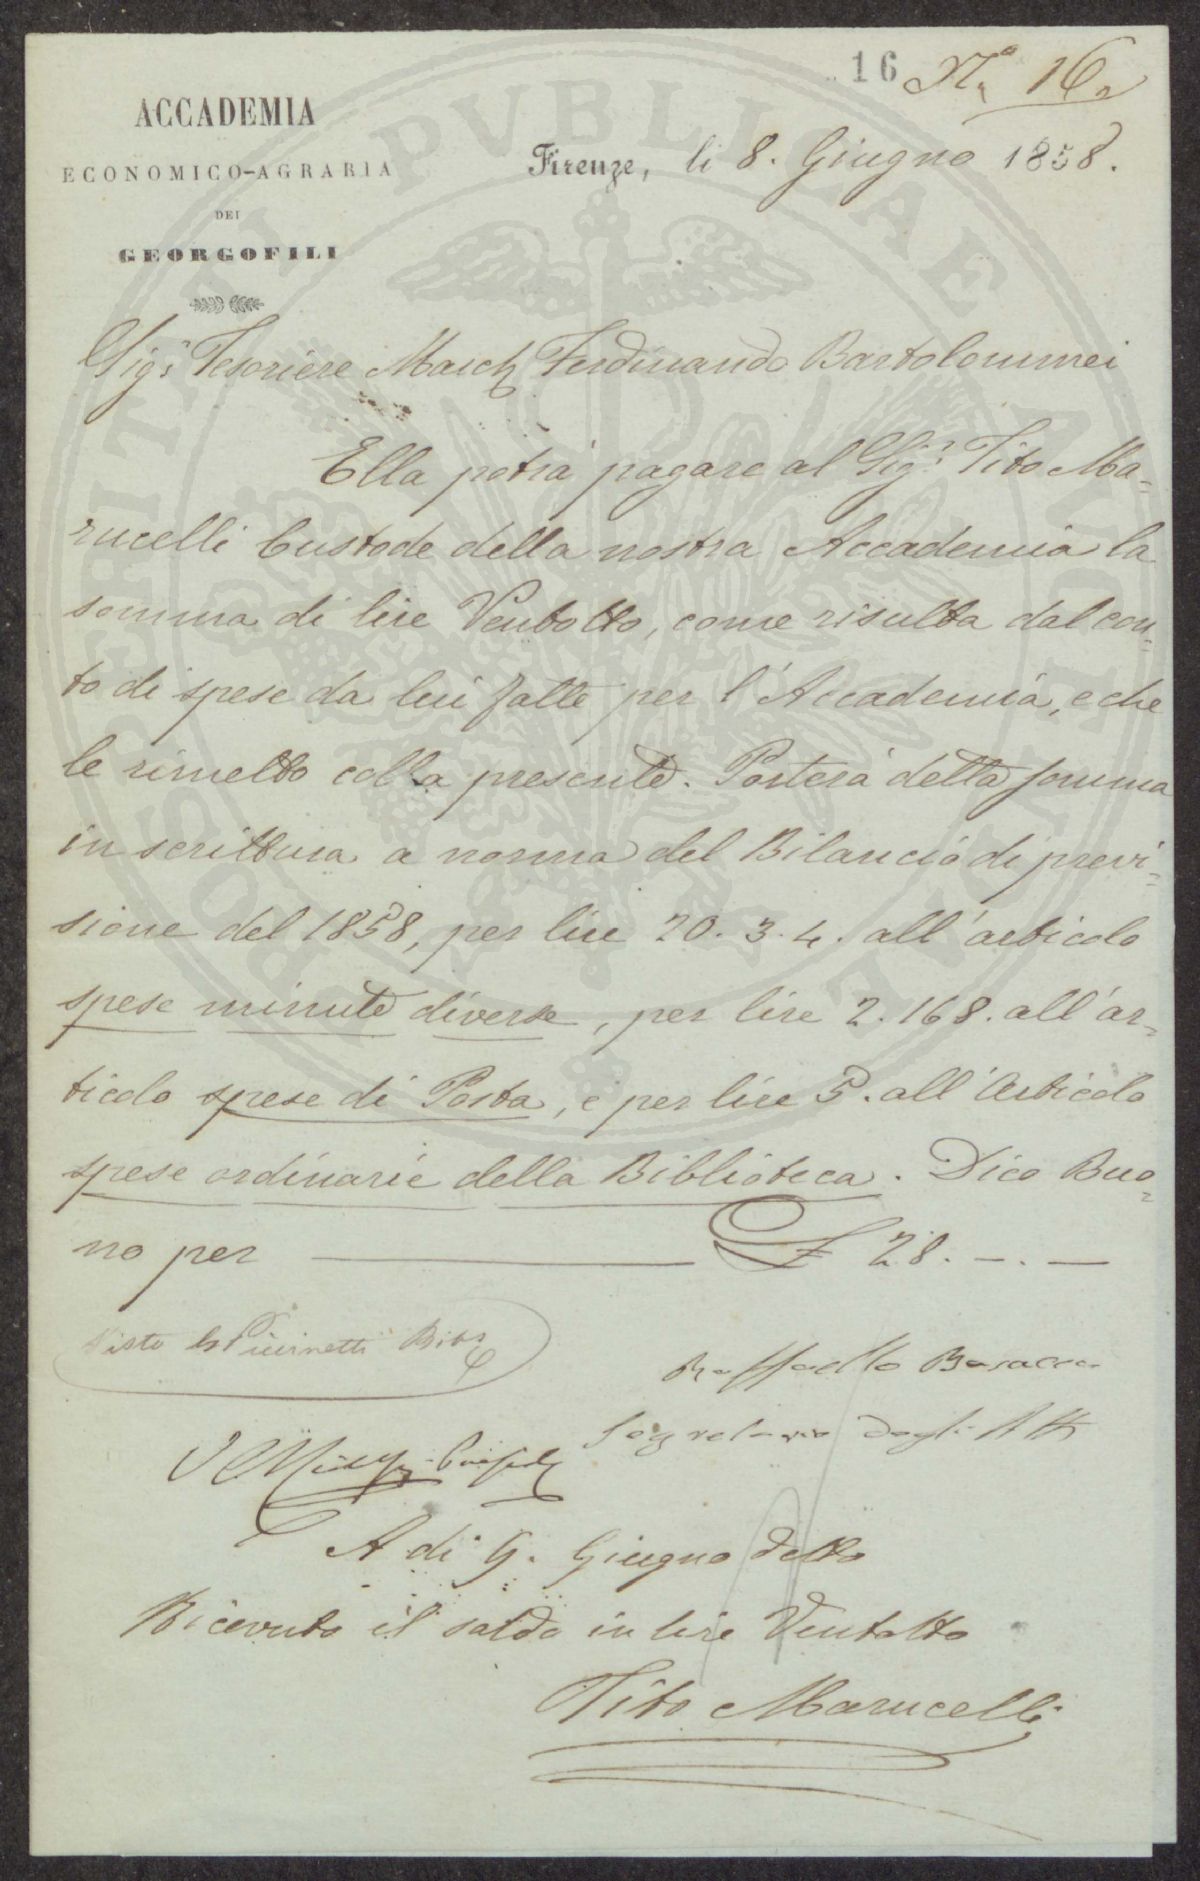 16 N.o 16.
ACCADEMIA
ECONOMICO-AGRARIA
DEI
GEORGOFILI
Firenze, li 8. Giugno 1858.
Sig.r Tesoriere March. Ferdinando Bartolommei
Ella potrà pagare al Sig.r Tito Ma=
rucelli Custode della nostra Accademia la
somma di lire Ventotto, come risulta dal con=
to di spese da lui fatte per l'Accademia, e che
le rimetto colla presente. Porterà detta somma
in scrittura a norma del Bilancio di previ=
sione del 1858, per lire 20. 3. 4. all'articolo
spese minute diverse, per lire 2. 16 8. all'ar=
ticolo spese di Posta, e per lire 5. all'Articolo
spese ordinarie della Biblioteca. Dico Buo=
no per ——— £ 28. —. —
Visto
Raffaello Busacca
Segretario degli Atti
A dì 9. Giugno detto
Ricevuto il saldo in lire Ventotto
Tito Marucelli
PROSPERITATI PVBLICAE AVGENDAE